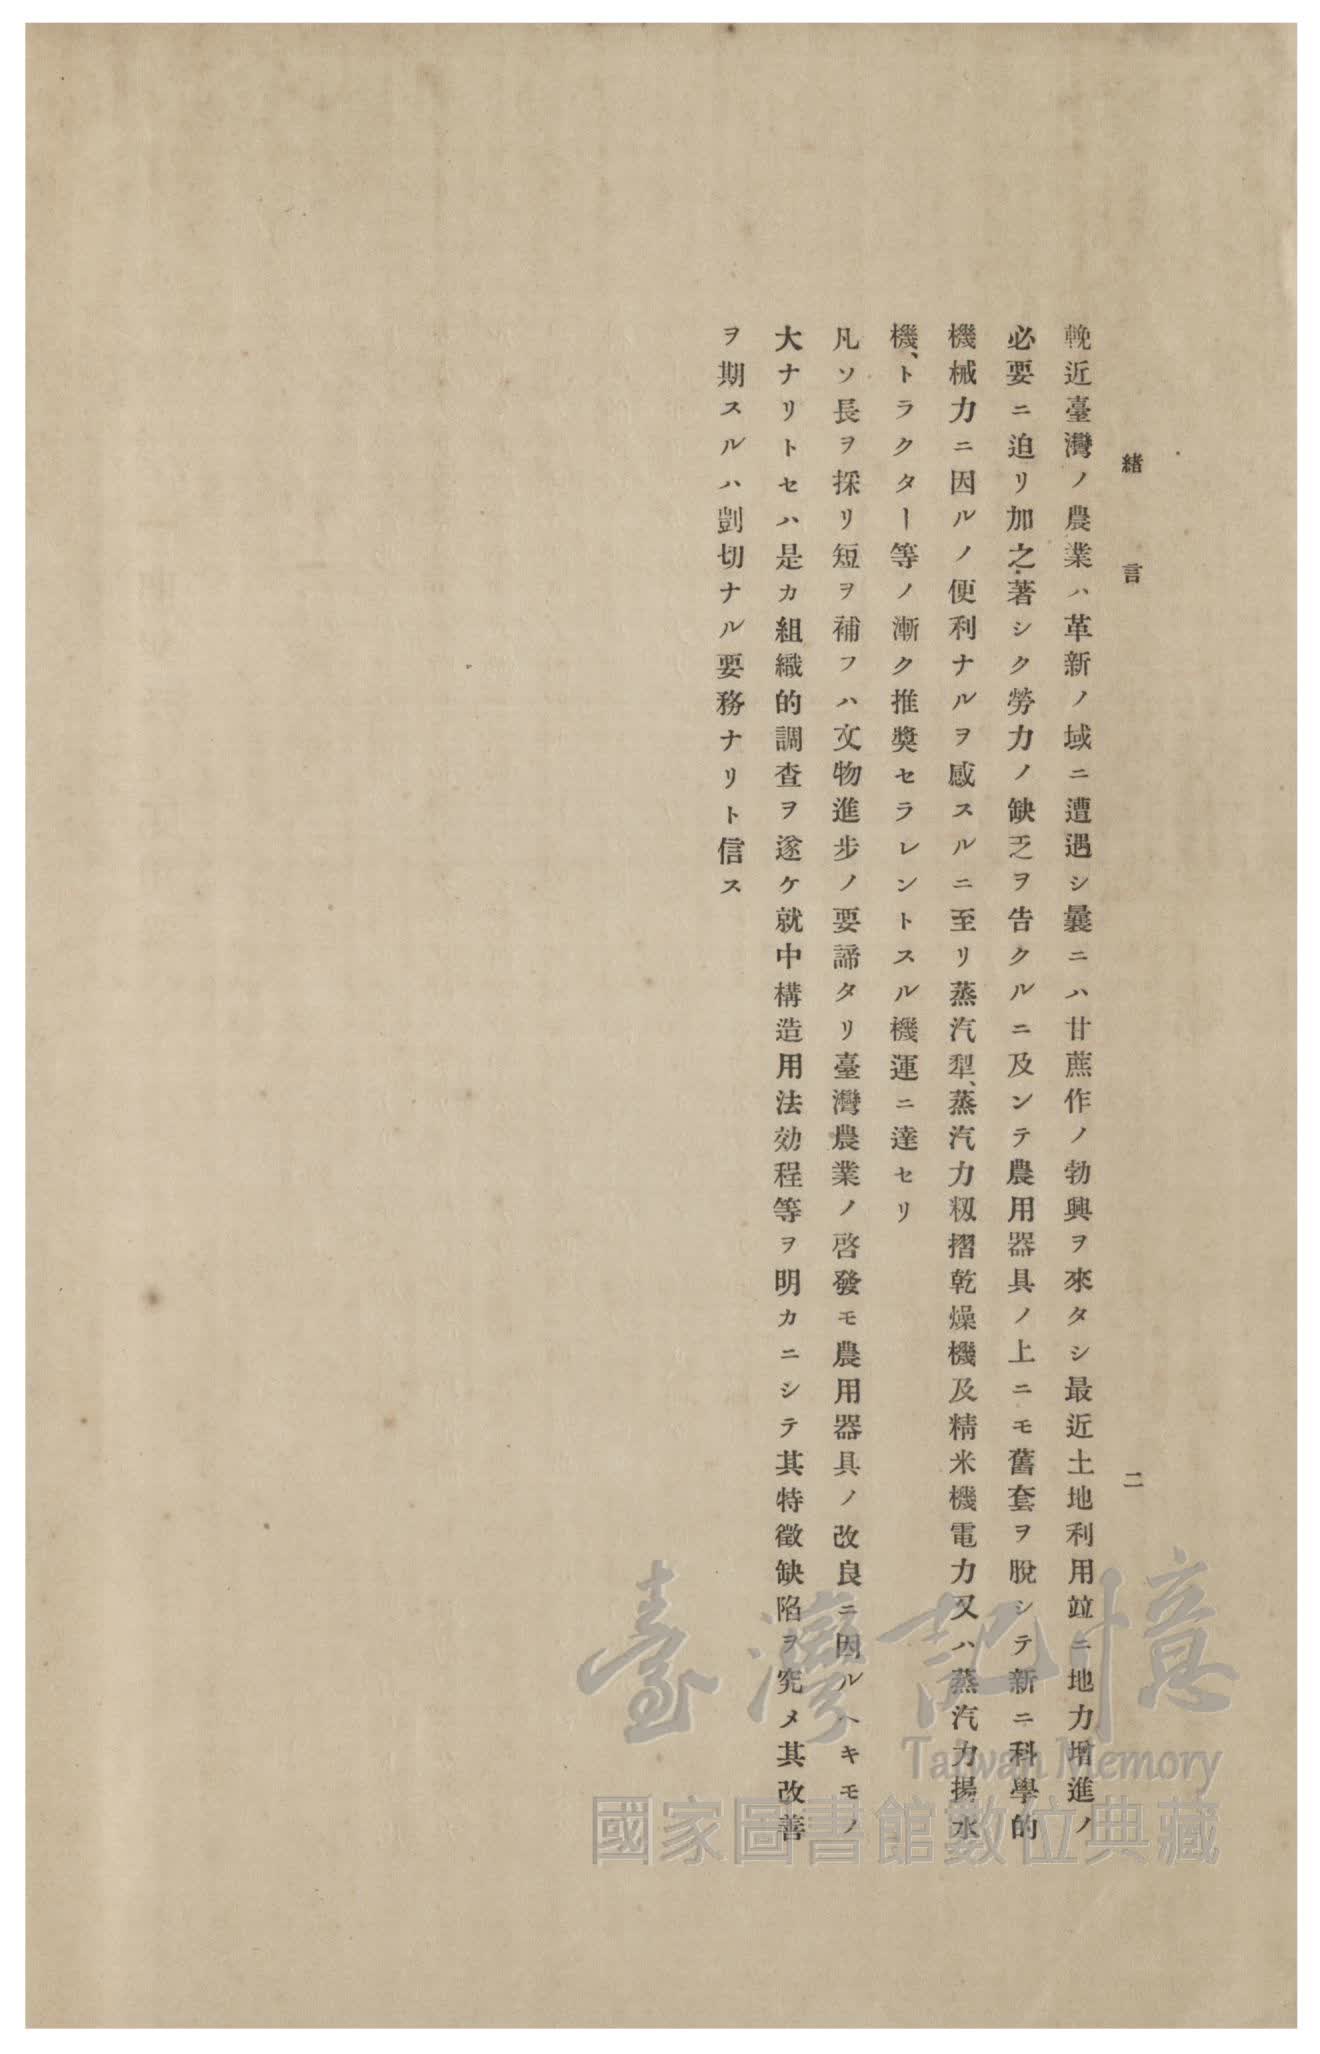 緒言 二
輓近臺灣ノ農業ハ革新ノ域ニ遭遇シ曩ニハ甘蔗作ノ勃興ヲ來タシ最近土地利用竝ニ地力增進ノ
必要ニ迫リ加之著シク勞力ノ缺乏ヲ告クルニ及ンテ農用器具ノ上ニモ舊套ヲ脫シテ新ニ科學的
機械力ニ因ルノ便利ナルヲ感スルニ至リ蒸汽犁、蒸汽力籾摺乾燥機及精米機電力又ハ蒸汽力揚水
機、トラクター等ノ漸ク推奬セラレントスル機運ニ達セリ
凡ソ長ヲ採リ短ヲ補フハ文物進步ノ要諦タリ臺灣農業ノ啓發モ農用器具ノ改良ニ因ルヘキモノ
大ナリトセハ是カ組織的調查ヲ遂ケ就中構造用法効程等ヲ明カニシテ其特徵缺陷ヲ究メ其改善
ヲ期スルハ剴切ナル要務ナリト信ス
臺灣記憶
Taiwan Memory
國家圖書館數位典藏